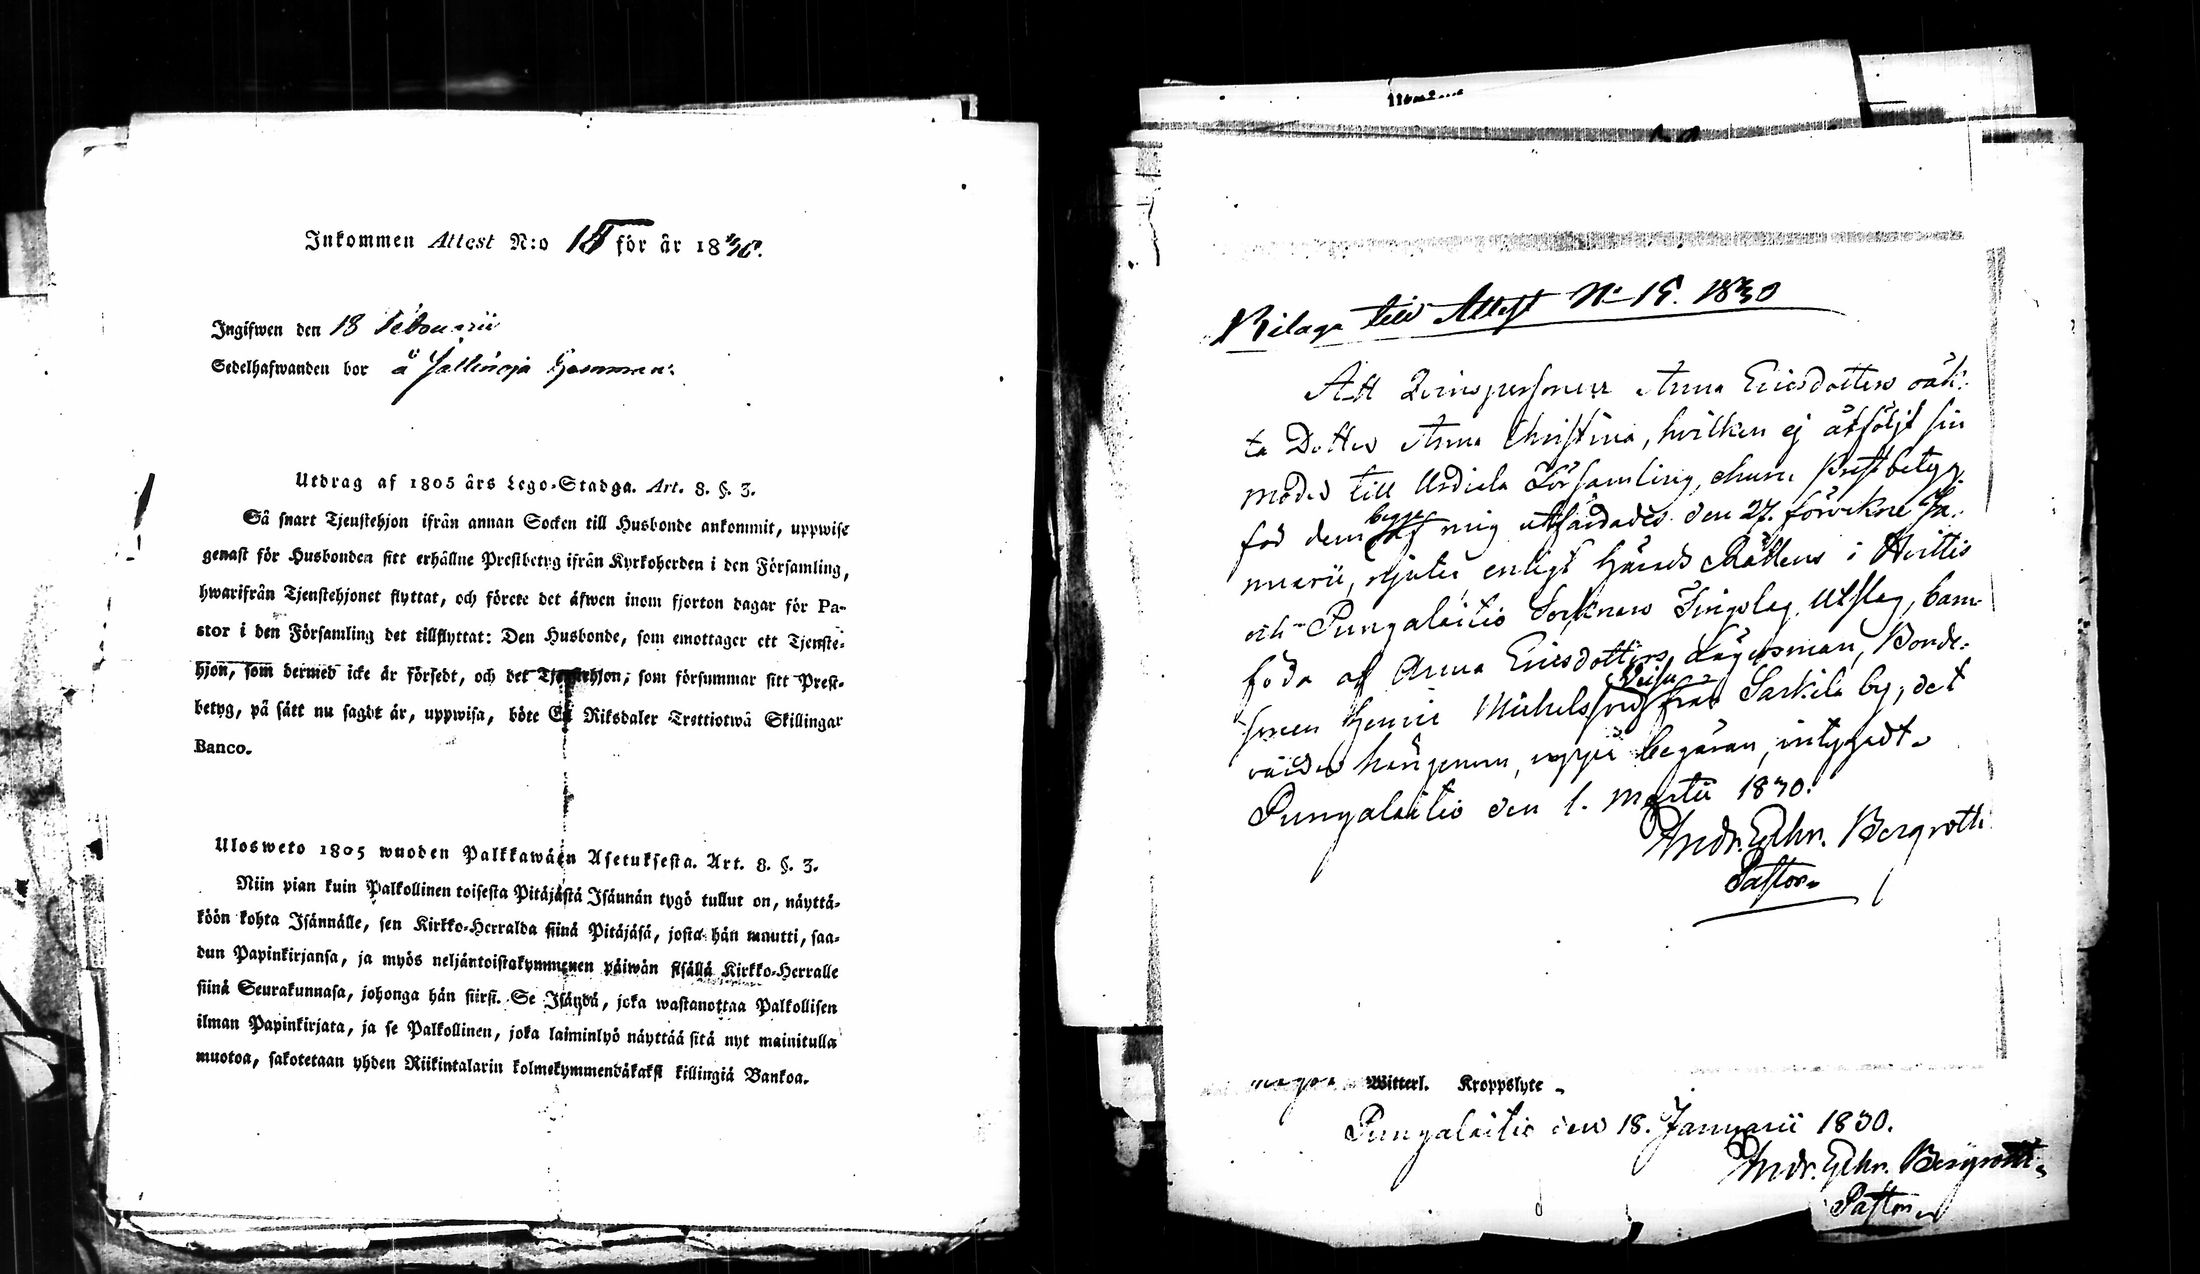 Inkommen Attest N:o 15 för år 1830.
Ingifwen den 18 Februarii
Sedelhafwanden bor å Hemman.
Utdrag af 1805 års Lego-Stadga. Art. 8. §. 3.
Så snart Tjenstehjon ifrån annan Socken till Husbonde ankommit, uppwise
genast för Husbonden sitt erhållne Prestbetyg ifrån Kyrkoherden i den Församling,
hwarifrån Tjenstehjonet flyttat, och förete det äfwen inom fjorton dagar för Pa-
stor i den Församling det tillflyttat: Den Husbonde, som emottager ett Tjenste-
hjon, som dermed icke är försedt, och det Tjenstehjon, som försummar sitt Prest-
betyg, på sätt nu sagdt är, uppwisa, böte En Riksdaler Trettiotwå Skillingar
Banco.
Ulosweto 1805 wuoden Palkkawäen Asetuksesta. Art. 8. §. 3.
Niin pian kuin Palkollinen toisesta Pitäjästä Isäunän tygö tullut on, näyttä-
köön kohta Isännälle, sen Kirkko-Herralda siinä Pitäjäsä, josta hän muutti, saa-
dun Papinkirjansa, ja myös neljäntoistakymmenen päiwän sisällä Kirkko-Herralle
siinä Seurakunnasa, johonga hän siirsi. Se Isändä, joka wastanottaa Palkollisen
ilman Papinkirjata, ja se Palkollinen, joka laiminlyö näyttää sitä nyt mainitulla
muotoa, sakotetaan yhden Riikintalarin kolmekymmendäkaksi killingiä Bankoa.
Bilaga till Attest N:o 15. 1830
Att Qvinspersonen Anna Ericsdotters oäk-
ta Dotter Anna Christina, hvilken ej åtföljt sin
moder till Urdiala Församling, ehuru prestbetyg
för dem begge af mig utfärdades den 27. förvekne Ja-
nuarii, njuter enligt Härads Rättens i Hvittis
och Pungalaitio Socknars Tingslag Utslag, barn-
föda af Anna Ericsdotters Lägersman, Bonde-
sonen Henric Michelsson från Sarkila by; det
varder härigenom, uppå begäran, intygadt.
Pungalaitio den 1. Martii 1830.
Andr. Ehr. Bergroth
Pastor.
Witterl. Kroppslyte
Pungalaitio den 18. Januarii 1830.
Andr. Ehr. Bergroth
Pastor.